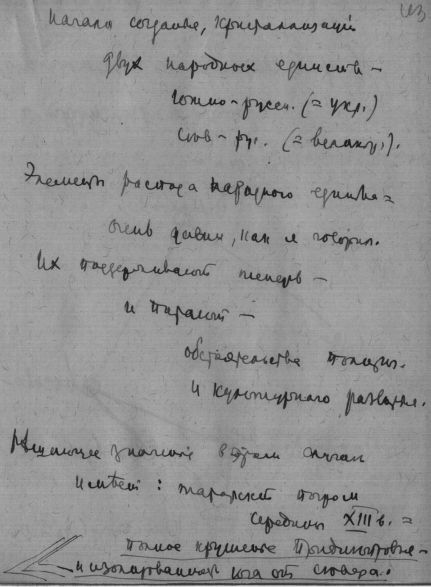 Начало создание, кристаллизаций
двух народных единств –
южно-русск. (= укр.)
сев-ру. (= великор.).
Элементы распада народного единства =
очень давни, как я говорил.
Их поддерживают теперь –
и питают –
обстоятельства политич.
и культурного развития.
Решающее значение в этом случае
имѣет: татарский погром
середины XIII в. =
полное крушение Приднѣпровья –
и изолированность юга от сѣвера.